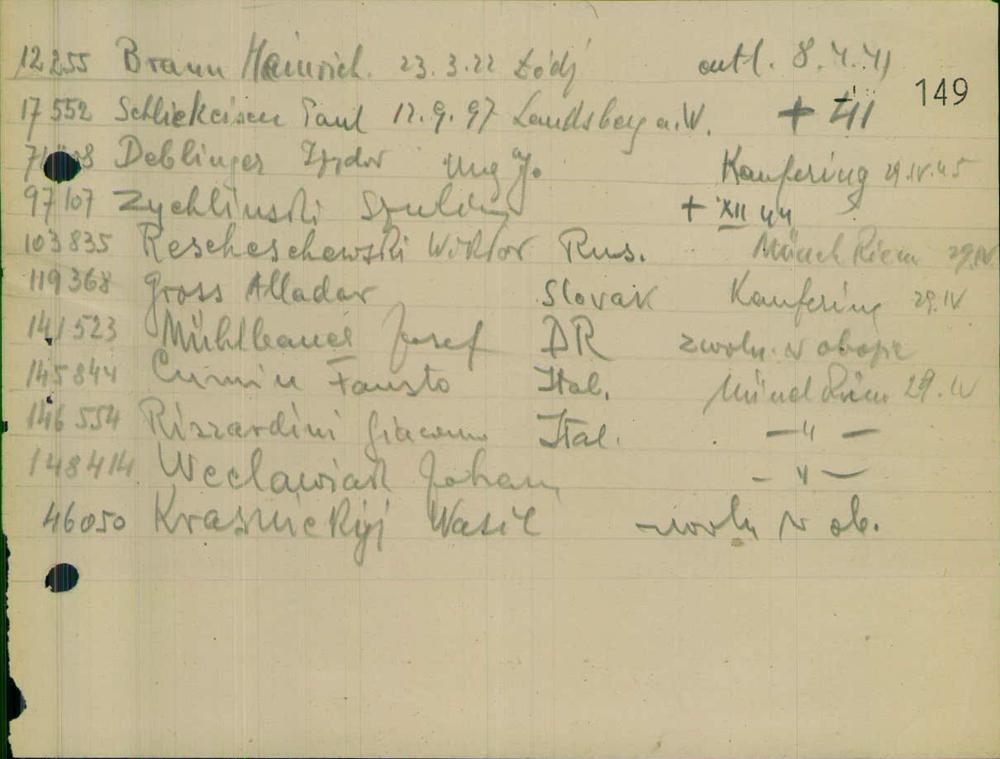 12255 Braun Heinrich. 23.3.22 Łódź entl. 8.4.41
149
17552 Schliekeisen Paul 12.9.97 Landsberg a.W. + 41
Deblinger Izydor Ung J. Kaufering 29.IV.45
97107 Zychlinski + XII 44
103835 Rescheschewski Wiktor Rus. Münch Riem 29.IV
119368 Gross Alladar Slovak Kaufering 29.IV
141523 Mühlbauer Josef DR zwoln. w obozie
145844 Fausto Ital. Münch Riem 29.IV
146554 Rizzardini Giacomo Ital. — " —
148414 Weclawiak Johan — " —
46050 Krasnickyj Wasil zwoln w ob.